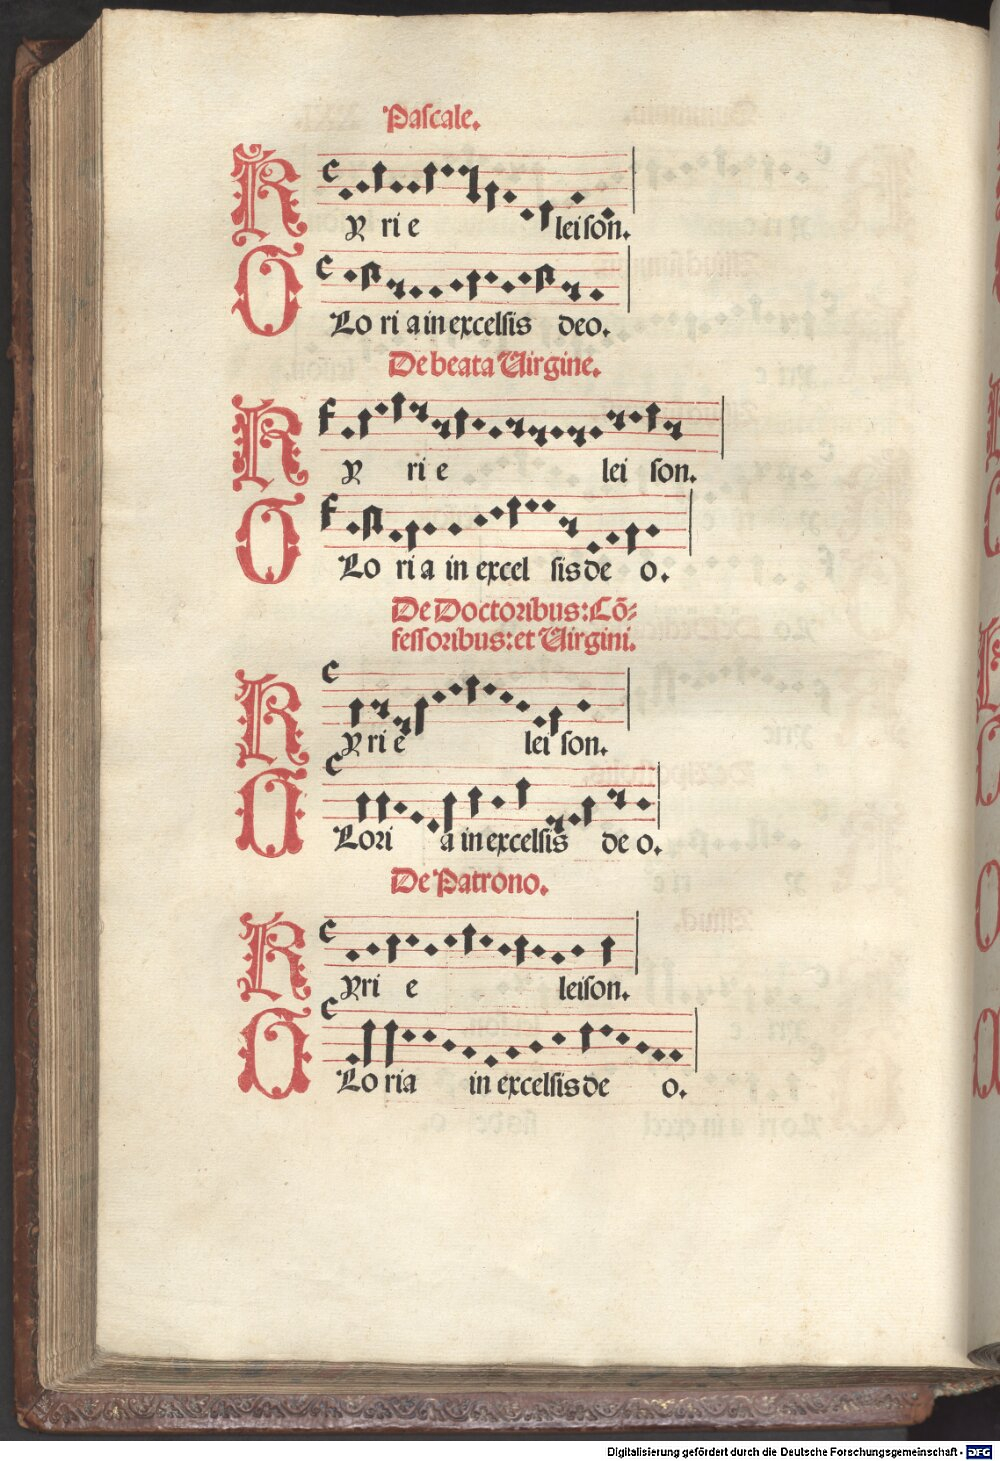 Pascale.
KY ri e leison.
GLo ri a in excelsis deo.
De beata Virgine.
KY ri e lei son.
GLo ri a in excel sis de o.
De Doctoribus: Cõ-
fessoribus: et Virgini.
KY ri e lei son.
GLori a in excelsis de o.
De Patrono.
KYri e leison.
GLo ria in excelsis de o.
Digitalisierung gefördert durch die Deutsche Forschungsgemeinschaft - DFG